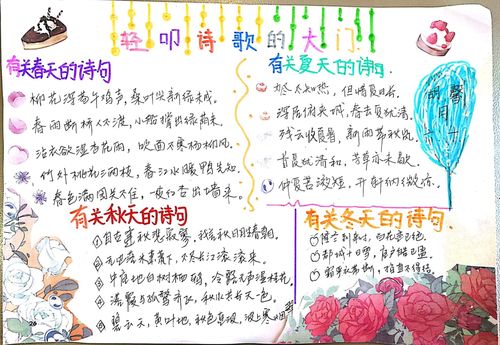 轻叩诗歌的大门
有关春天的诗句
柳花深巷午鸡声，桑叶尖新绿未成。
春雨断桥人不渡，小舟撑出绿荫来。
沾衣欲湿杏花雨，吹面不寒杨柳风。
竹外桃花三两枝，春江水暖鸭先知。
春色满园关不住，一枝红杏出墙来。
有关夏天的诗句
深居俯夹城，春去夏犹清。
残云收夏暑，新雨
首夏犹清和，芳草亦未歇
仲夏苦夜短，开轩纳微凉。
有关秋天的诗句
①自古逢秋悲寂寥，我言秋日胜春朝。
②无边落木萧萧下，不尽长江滚滚来。
③中庭地白树栖鸦，冷露无声湿桂花。
④落霞与孤鹜齐飞，秋水共长天一色。
⑤碧云天，黄叶地，秋色连波，波上寒烟翠
有关冬天的诗句
②都城十日雪，庭户皓已盈。
26